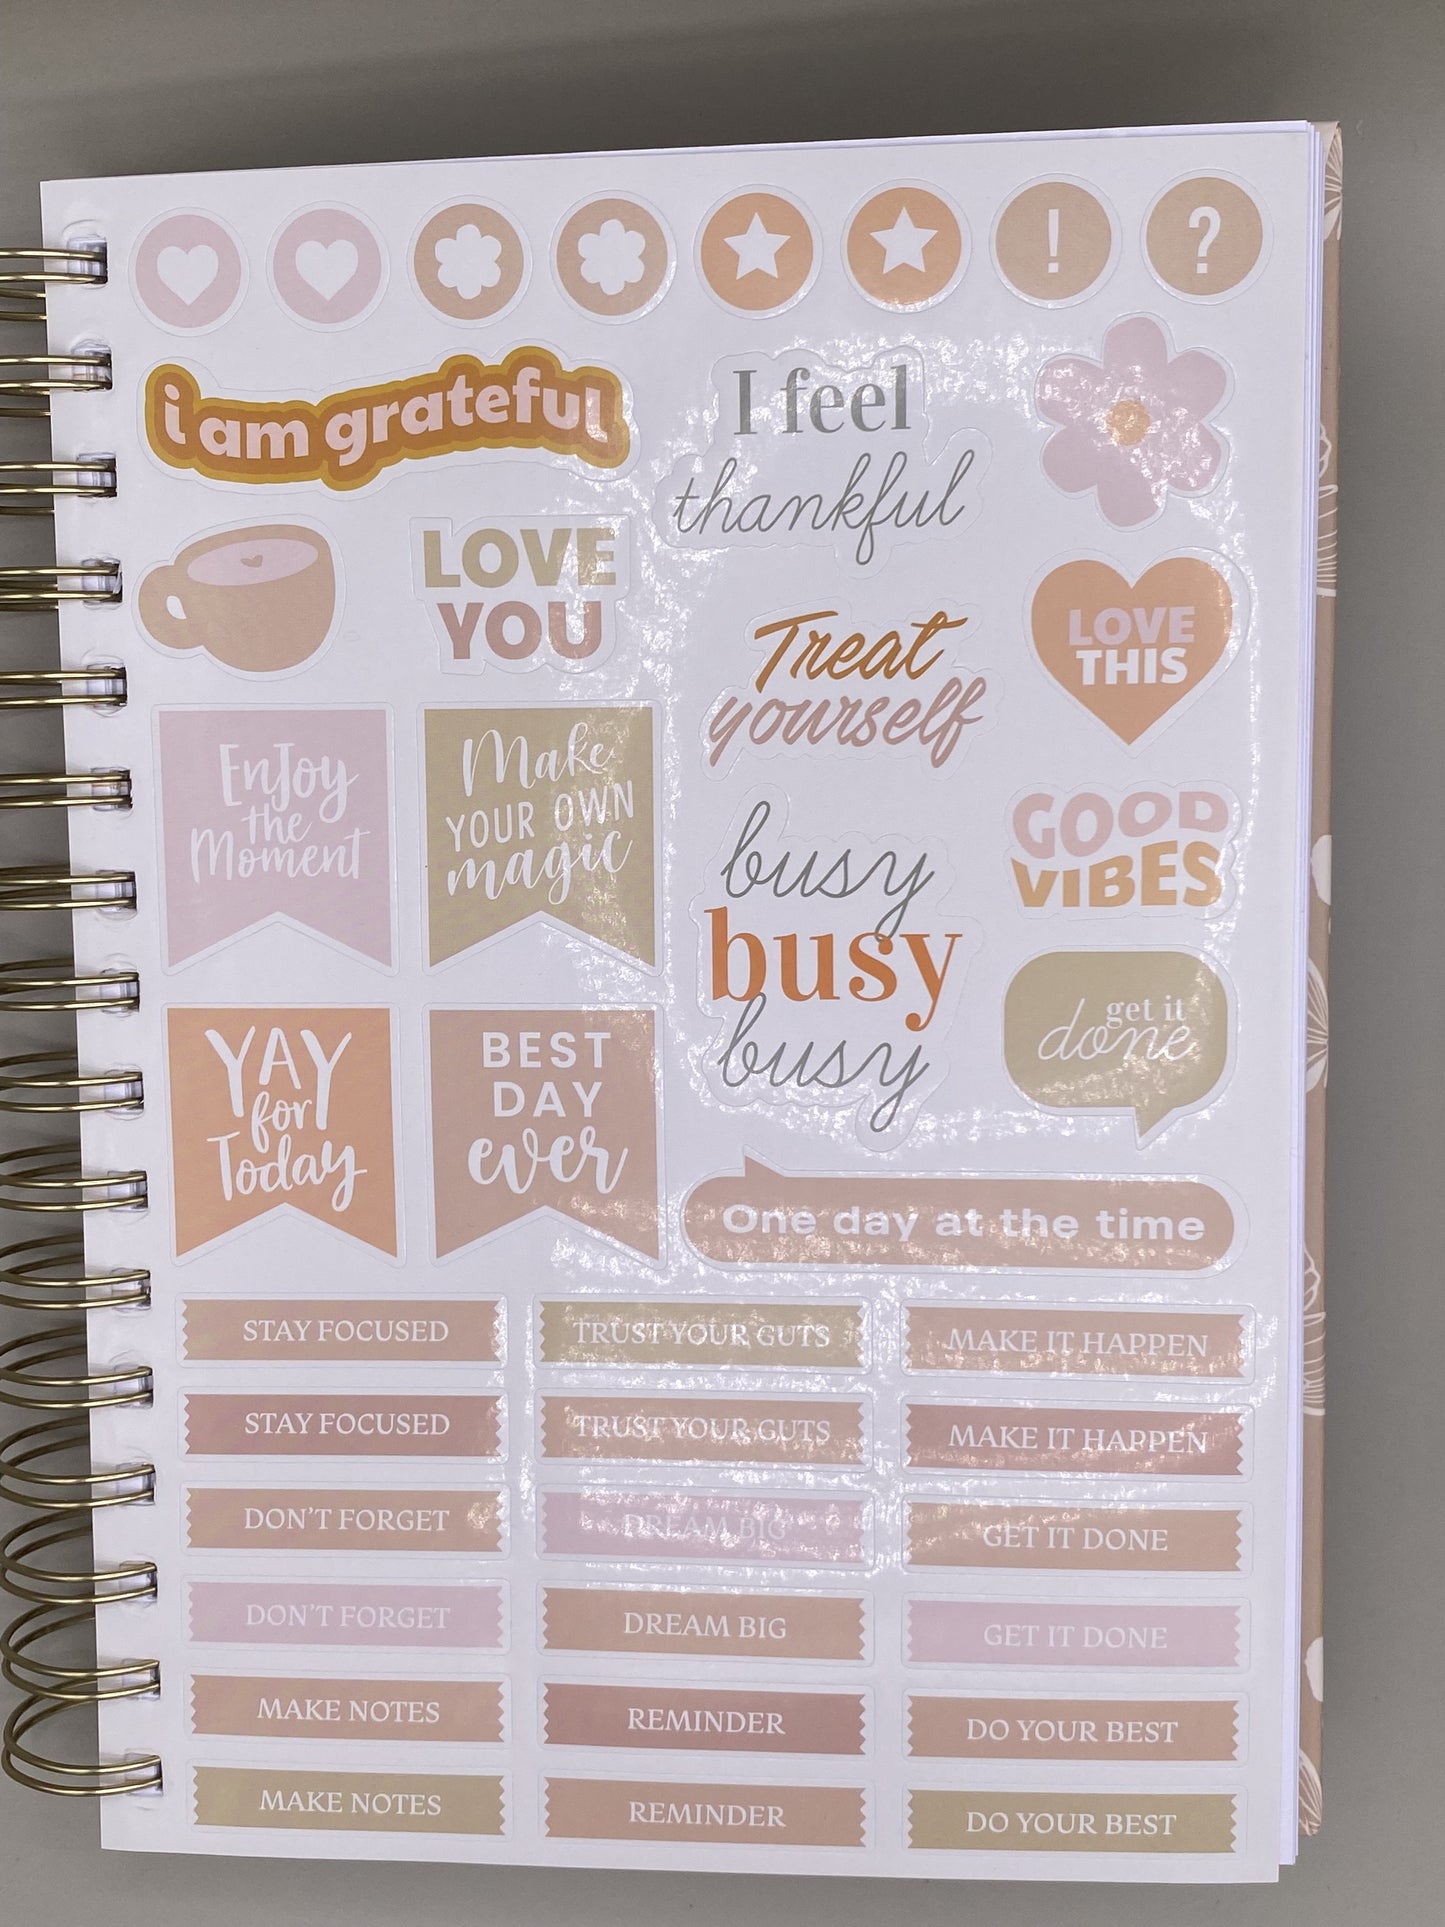 !
?
i am grateful
I feel
thankful
LOVE
YOU
Treat
yourself
LOVE
THIS
Enjoy
the
Moment
Make
YOUR OWN
magic
busy
busy
busy
GOOD
VIBES
get it
done
YAY
for
Today
BEST
DAY
ever
One day at the time
STAY FOCUSED
TRUST YOUR GUTS
MAKE IT HAPPEN
STAY FOCUSED
TRUST YOUR GUTS
MAKE IT HAPPEN
DON'T FORGET
DREAM BIG
GET IT DONE
DON'T FORGET
DREAM BIG
GET IT DONE
MAKE NOTES
REMINDER
DO YOUR BEST
MAKE NOTES
REMINDER
DO YOUR BEST